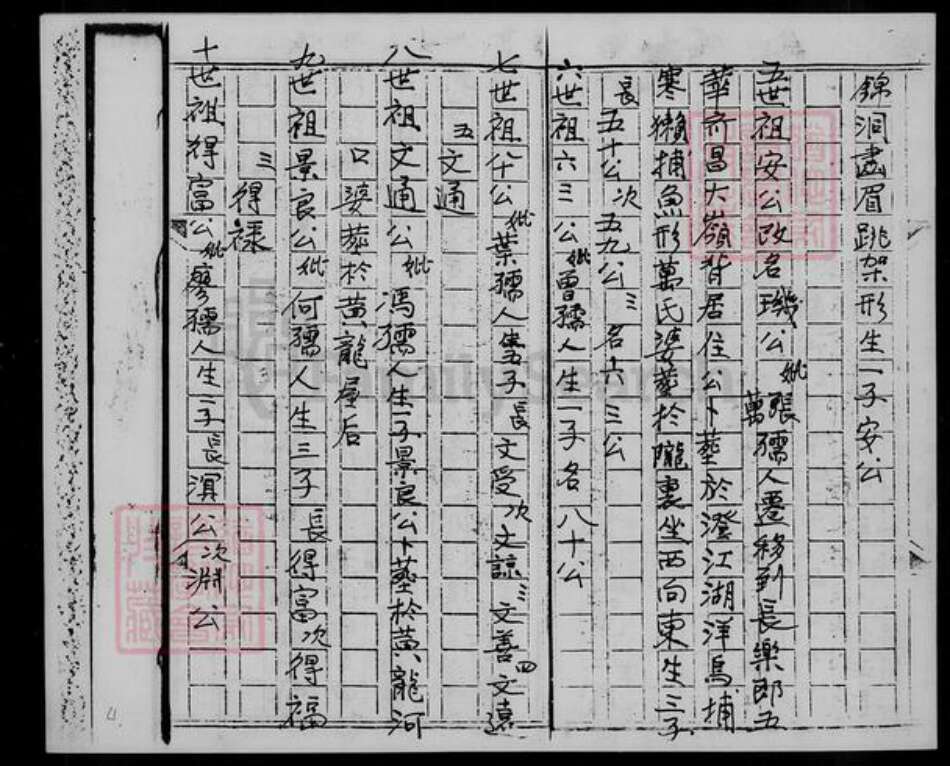 錦洞畫眉跳架形生一子安公
五世祖安公改名璣公妣張萬孺人遷移到長樂即五
華齐昌大嶺背居住公卜葬於澄江湖洋烏捕
寒獺捕魚形萬氏婆葬於隴裏坐西向東生三子
長五十公次五九公三名六三公
六世祖六三公妣曾孺人生一子名八十公
七世祖八十公妣葉孺人生五子長文受次文諒三文善四文遠
五文通
八世祖文通公妣馮孺人生一子景良公卜葬於黃龍河
口婆葬於黃龍屋后
九世祖景良公妣何孺人生三子長得富次得福
三得祿
十世祖得富公妣廖孺人生二子長淇公次淵公